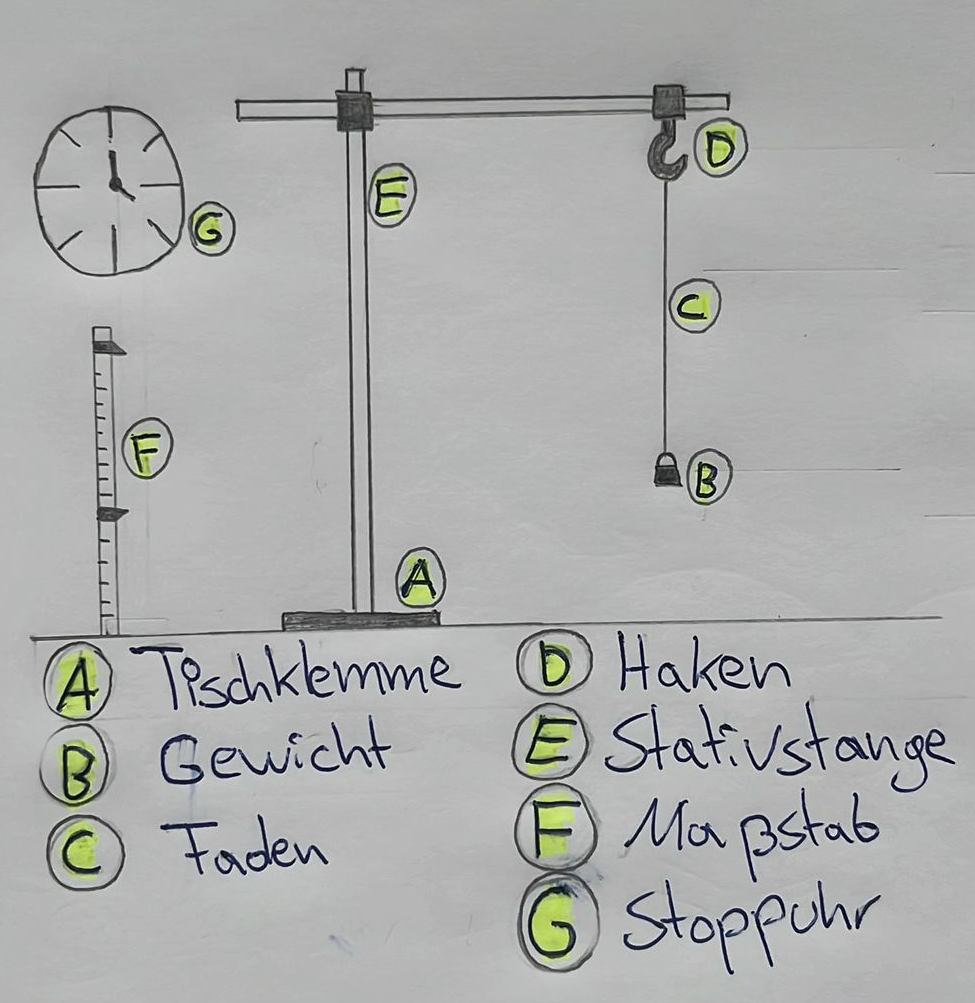 G
E
D
C
F
B
A
A Tischklemme
B Gewicht
C Faden
D Haken
E Stativstange
F Maßstab
G Stoppuhr